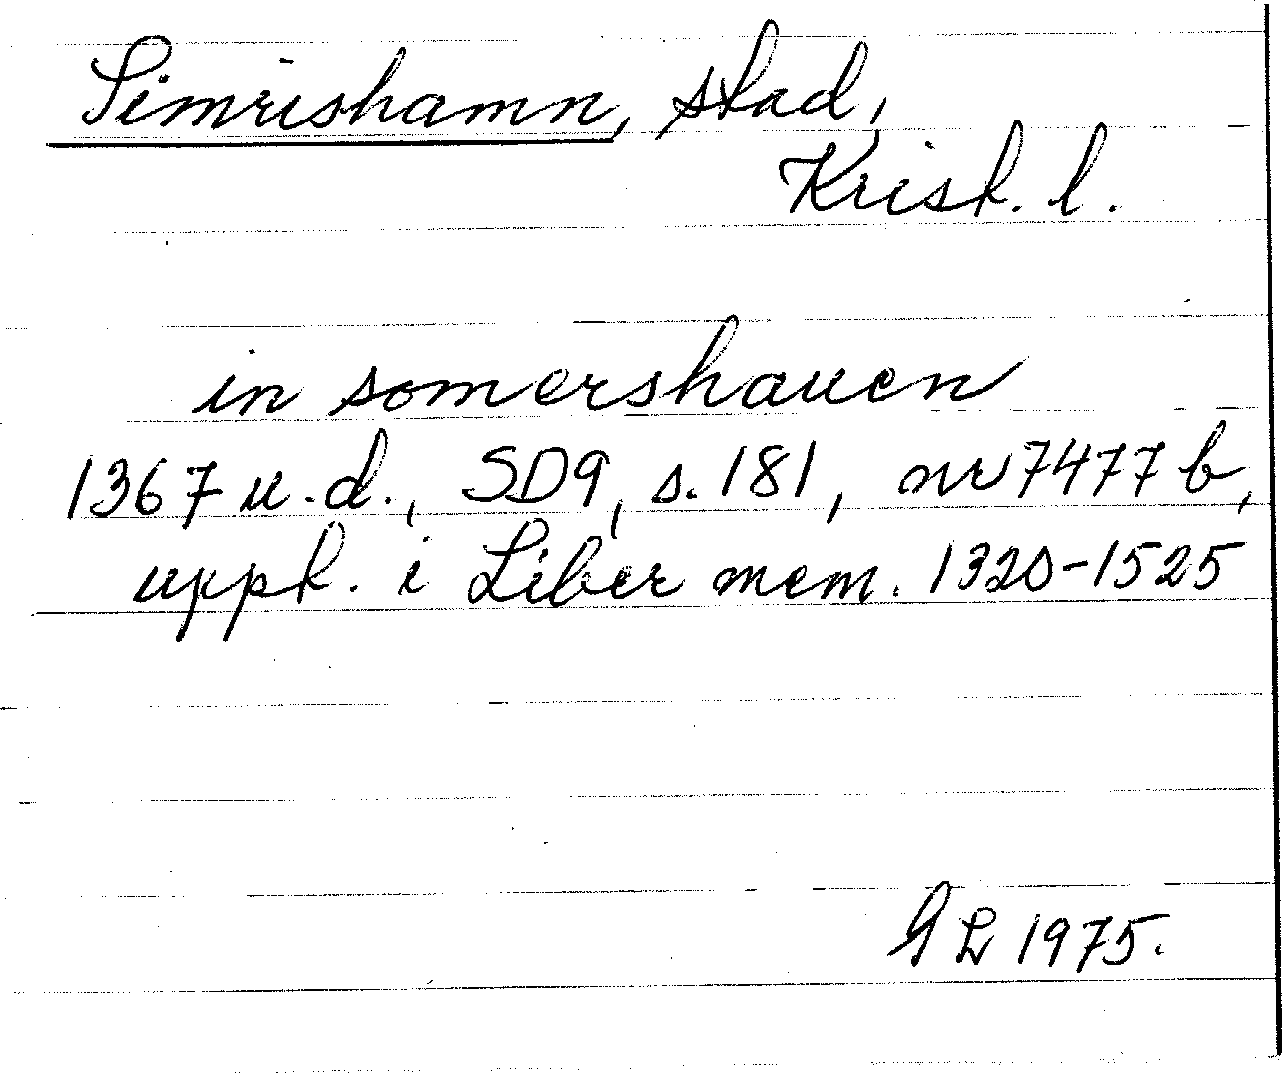 Simrishamn, stad,
Krist. l.
in somershauen
1367 u.d., SD9, s. 181, nr 7477 b,
uppt. i Liber mem. 1320-1525
GL 1975.